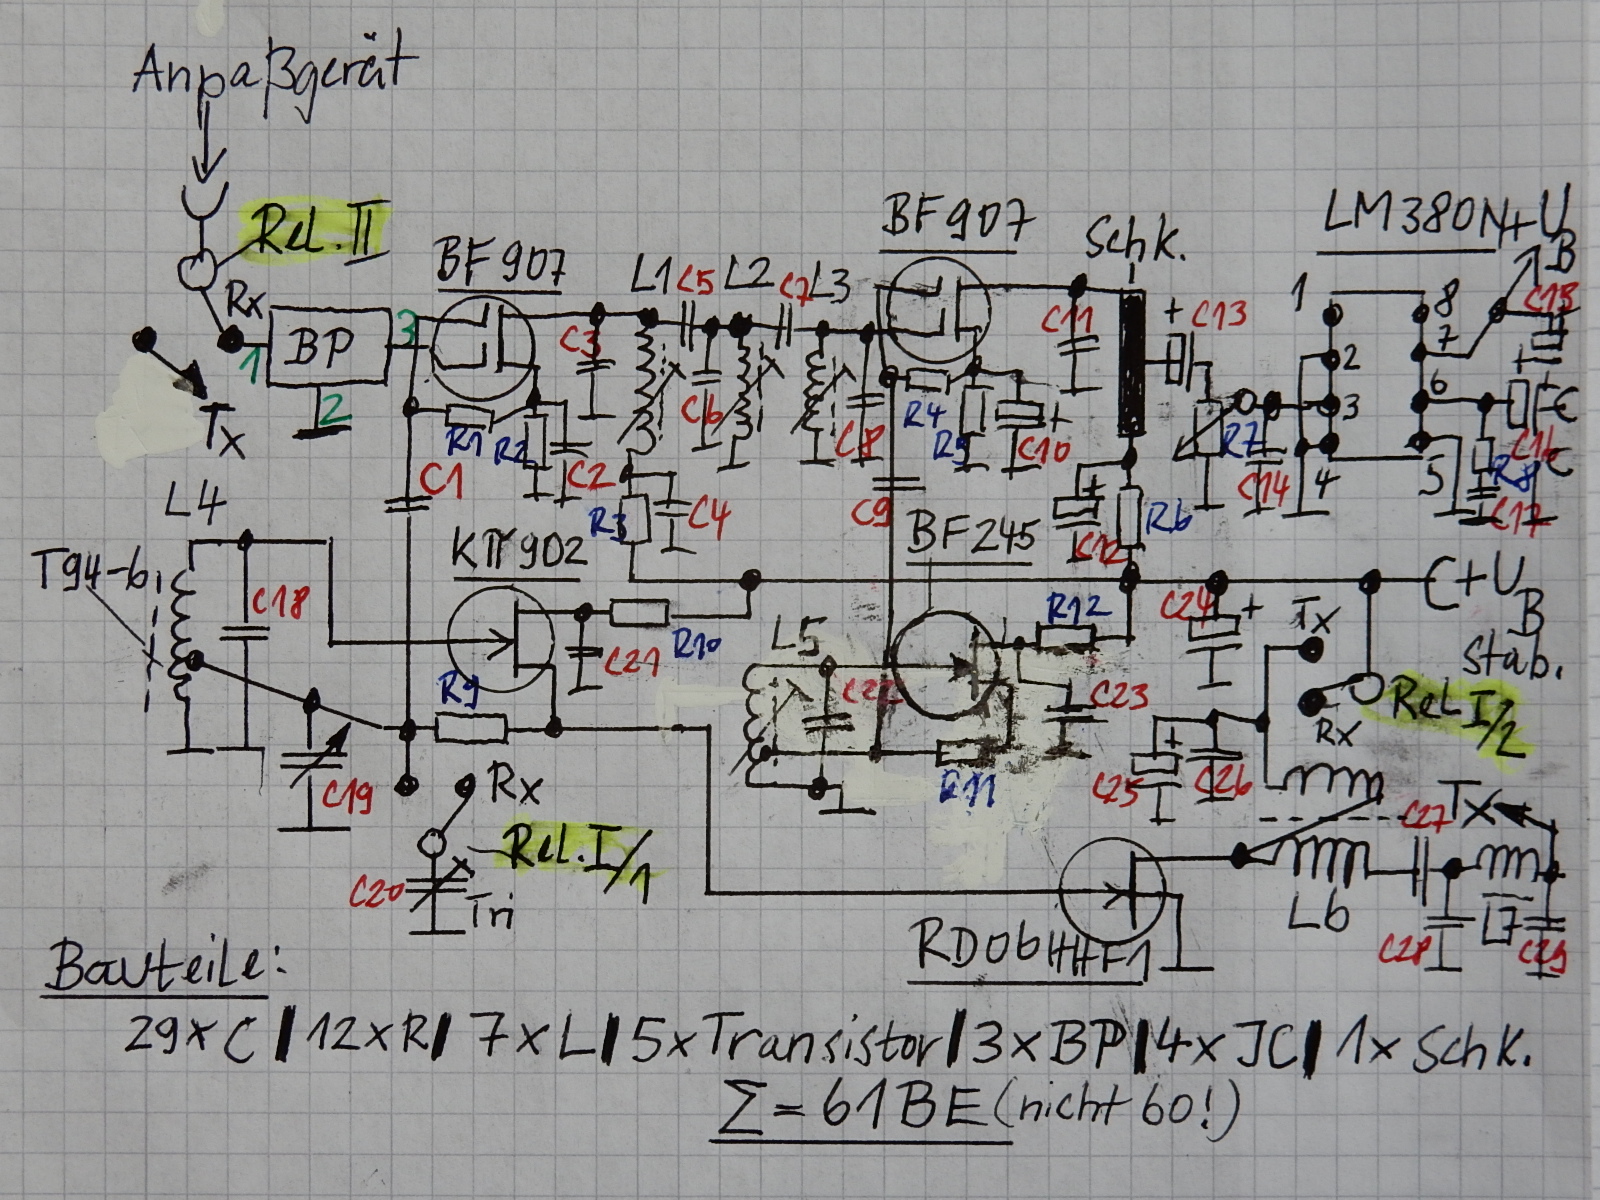 Anpaßgerät
Rel. II
Rx
BP
1
2
3
Tx
BF907
L1
C5
L2
C7
L3
BF907
Schk.
LM380N
+UB
C3
C6
C8
C11
C13
R1
R2
C2
C1
R3
C4
R4
R5
C10
C9
C12
R6
R7
C14
1
2
3
4
8
7
6
5
C15
C16
R8
C17
L4
T94-6
C18
KП902
BF245
R9
C21
R10
L5
C22
R11
R12
C23
C24
+UB
stab.
Tx
Rx
Rel I/2
C19
Rx
Rel. I/1
C20
Tri
C25
C26
C27
Tx
L6
L7
C28
C29
RD06HHF1
Bauteile:
29xC | 12xR | 7xL | 5xTransistor | 3xBP | 4xJC | 1x Schk.
Σ = 61BE (nicht 60!)